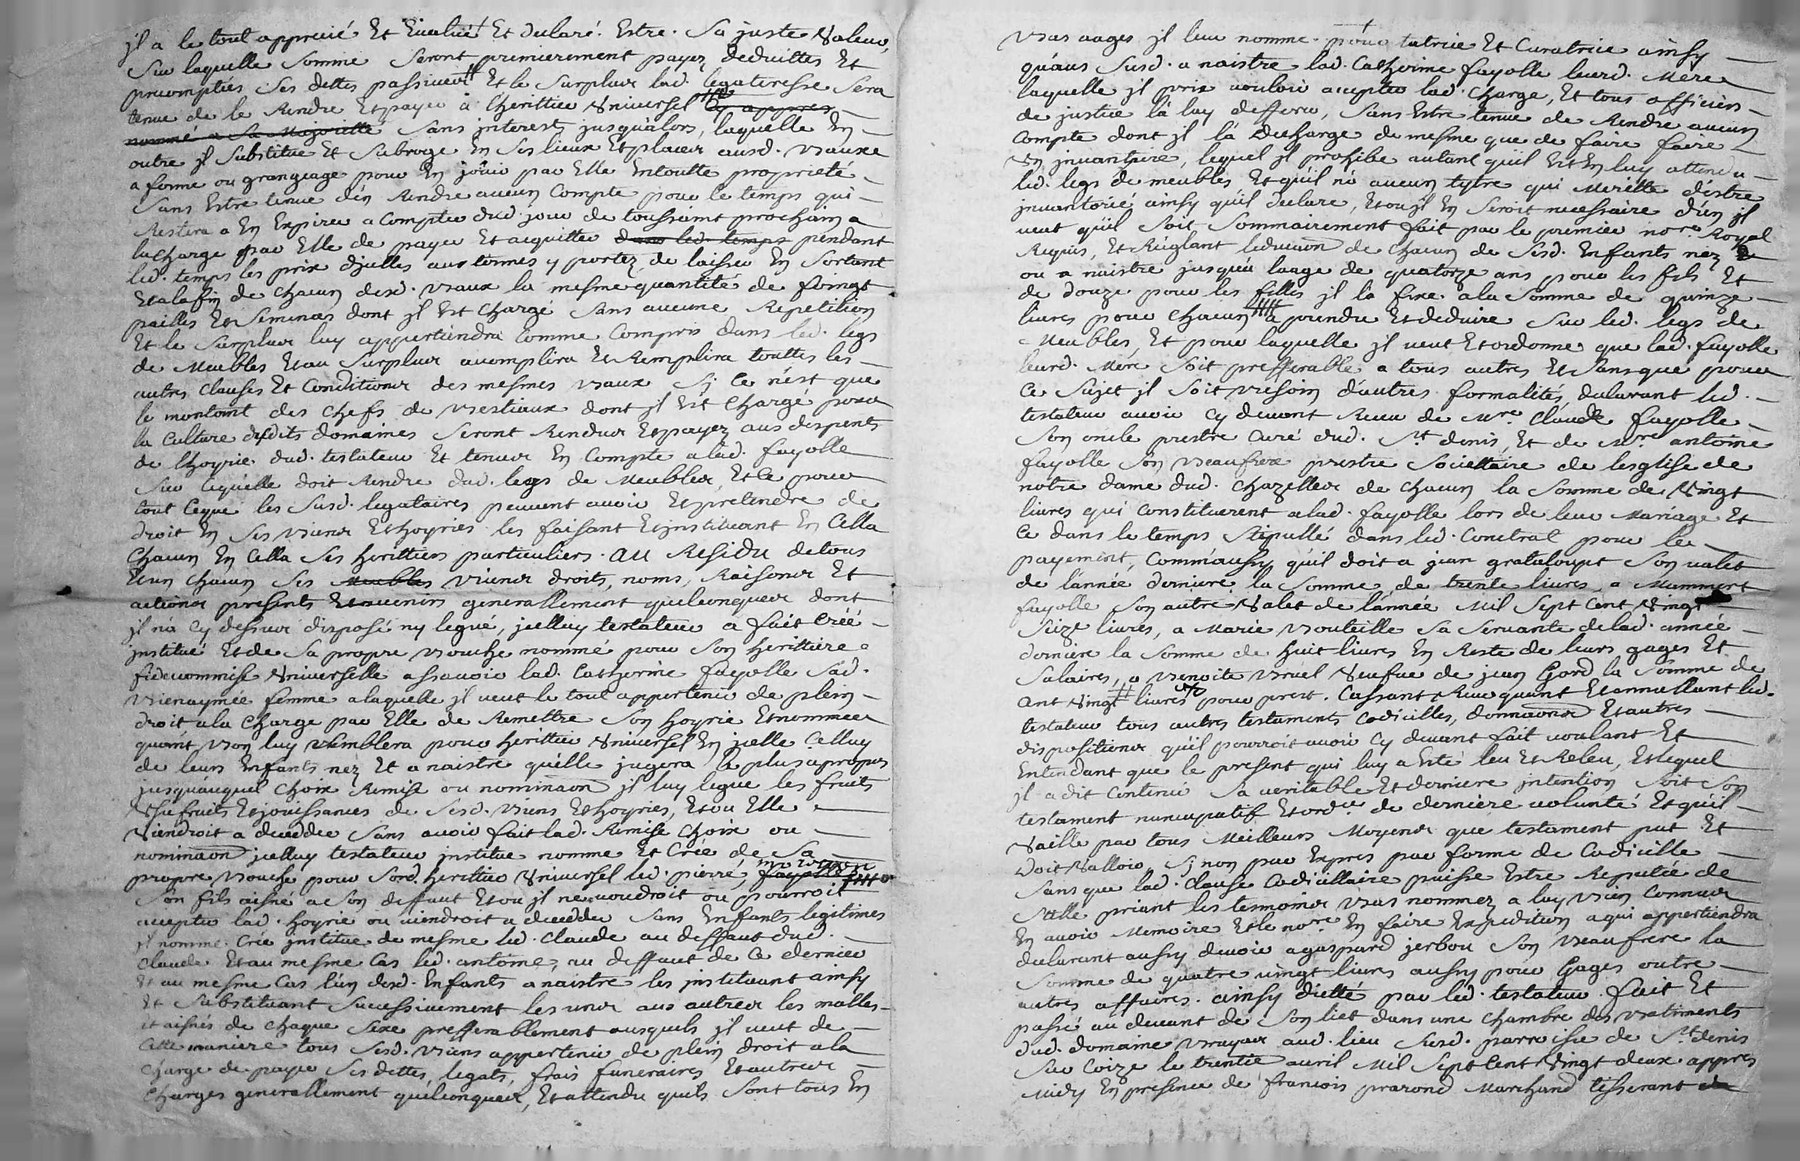 jl a le tout apprecié Et Evalué Et declaré Estre Sa juste Valeur,
Sur laquelle Somme Seront premierement payez deduittes Et
precomptées Ses dettes passiues Et le Surplus lad. legateresse Sera
tenue de le Rendre Et payer a l'herittier Vniversel cy appres
nommé a Sa Majoritte Sans jnterest jusqualors, laquelle En
outre jl Substitue Et Subroge En Ses lieux Et places ausd. Baux
a ferme ou grangeage pour En joüir par Elle En toutte proprieté
Sans Estre tenue d'en Rendre aucun Compte pour le temps qui
Restera a En Expirer a Compter dud. jour de toussaint prochain a
la charge par Elle de payer Et acquitter dans led. temps pendant
led. temps les prix d'jcelles aux termes y portez, de laisser En Sortant
Et a la fin de chacun desd. Baux la mesme quantité de foings
pailles Et Semences dont jl Est Chargé Sans aucune Repetition
Et le Surplus luy appartiendra comme Compris dans led. legs
de Meubles Et au Surplus accomplira Et Remplira touttes les
autres clauses Et Conditions des mesmes Baux Sj Ce n'est que
le montant des chefs de Bestiaux dont jl Est Chargé pour
la Culture desdits domaines Seront Rendus Et payez aux despents
de lhoyrie dud. testateur Et tenus En Compte a lad. fayolle
Sur cequelle doit Rendre dud. legs de Meubles, Et Ce pour
tout Ceque les Susd. legataires peuvent auoir Et pretendre de
droit En Ses Biens Et hoyries les faisant Et jnstituant En Cella
Chacun En Cella Ses herittiers particuliers. AU Residu de tous
Et un chacun Ses Meubles Biens droits, noms, Raisons Et
actions presents Et auenir generallement quelconques dont
jl n'a Cy dessus disposé ny legué, jcelluy testateur a fait Créé
jnstitué Et de Sa propre Bouche nommé pour Son herittiere
fideicommise Vniverselle assauoir lad. Catherine fayolle Sad.
Bienaymée femme a laquelle jl veut le tout appartenir de plein
droit a la charge par Elle de Remettre Son hoyrie Et nommer
quant Bon luy Semblera pour herittier Vniversel En jcelle Celluy
de leurs Enfants nez Et a naistre quelle jugera le plus a propos
jusquauquel choix Remise ou nominaon jl luy legue les fruits
Vsufruits Et jouissances de Sesd. Biens Et hoyries, Et ou Elle
Viendroit a deceder Sans auoir fait lad. Remise choix ou
nominaon jcelluy testateur jnstitue nomme Et Crée de Sa
propre Bouche pour Sond. herittier Vniversel led. pierre, fayolle
Son fils aisné a Son deffaut Et ou jl ne voudroit ou pourroit
accepter lad. hoyrie ou viendroit a deceder Sans Enfants legitimes
jl nomme Crée jnstitue de mesme led. Claude au deffaut dud.
Claude Et au mesme Cas led. antoine, au deffaut de Ce dernier
Et au mesme Cas l'un desd. Enfants a naistre les jnstituant ainsy
Et Substituant Successivement les uns aux autres les masles
Et aisnés de chaque Sexe preferablement ausquels jl veut de
Cette maniere tous Sesd. Biens appartenir de plein droit a la
charge de payer Ses dettes, legats, frais funeraires Et autres
Charges generallement quelconques, Et attendu quils Sont tous En
Bas aages jl leur nomme pour tutrice Et Curatrice ainsy
qu'aux Susd. a naistre lad. Catherine fayolle leurd. Mere
laquelle jl prie vouloir accepter lad. Charge, Et tous officiers
de justice la luy defferer, Sans Estre tenue de Rendre aucun
Compte dont jl la decharge de mesme que de faire faire
En jnuantaire, lequel jl prohibe autant quil Est En luy attendu
led. legs de meubles Et quil n'a aucun tytre qui Meritte d'estre
jnuantorié ainsy quil declare, Et ou jl En Seroit necessaire d'un jl
veut quil Soit Sommairement fait par le premier nore. Royal
Requis, Et Reglant leducaon de chacun de Sesd. Enfants nez
ou a naistre jusqu'a laage de quatorze ans pour les fils Et
de douze pour les filles jl la fixe a la Somme de quinze
livres pour chacun a prendre Et deduire Sur led. legs de
Meubles, Et pour laquelle jl veut Et ordonne que lad. fayolle
leurd. Mere Soit prefferable a tous autres Et Sans que pour
Ce Sujet jl Soit Besoin dautres formalités, declarant led.
testateur auoir Cy deuant Receu de Mre. Claude fayolle
Son oncle prestre curé dud. St. denis, Et de Mre. antoine
fayolle Son Beaufrere prestre Societtaire de lesglise de
notre dame dud. Chazelles de chacun la Somme de Vingt
livres qui constituerent a lad. fayolle lors de leur Mariage Et
Ce dans le temps Stipullé dans led. Contrat pour le
payement, Comm'aussy quil doit a jean grataloupt Son valet
de lannée derniere la Somme de trente livres, a Mammert
fayolle Son autre Valet de lannée Mil Sept Cent Vingt
Seize livres, a Marie Bouteille Sa Servante de lad. année
derniere la Somme de huit livres En Reste de leurs gages Et
Salaires, a Benoite Bruel Veufue de jean Gord la Somme de
Cent Vingt livres pour prest. Cassant Reuoquant Et annullant led.
testateur tous autres testaments Codicilles, donnaons Et autres
dispositions quil pourroit auoir Cy deuant fait voulant Et
Entendant que le present qui luy a Esté leu Et Releu, Et lequel
jl a dit Contenir Sa veritable Et derniere jntention Soit Son
testament nuncupatif Et ordre. de derniere volunté Et quil
Vaille par tous Meilleurs Moyens que testament put Et
doit Valloir, Sj non par Expres par forme de Codicille
Sans que lad. clause Codicillaire puisse Estre Reputée de
Stille priant les tesmoins Bas nommez a luy Bien Connus
En auoir Memoire Et le nore. En faire Expedition a qui appartiendra
declarant aussy devoir a gaspard jerbou Son Beaufrere la
Somme de quatre vingt livres aussy pour Gages outre
autres affaires. ainsy dicté par led. testateur. fait Et
passé au deuant de Son liet dans une chambre des Batiments
dud. domaine Brayar aud. lieu Susd. parroisse de St. denis
Sur Coize le trentie. auril Mil Sept Cent Vingt deux appres
Midy En presence de francois prarond Marchand tisserant